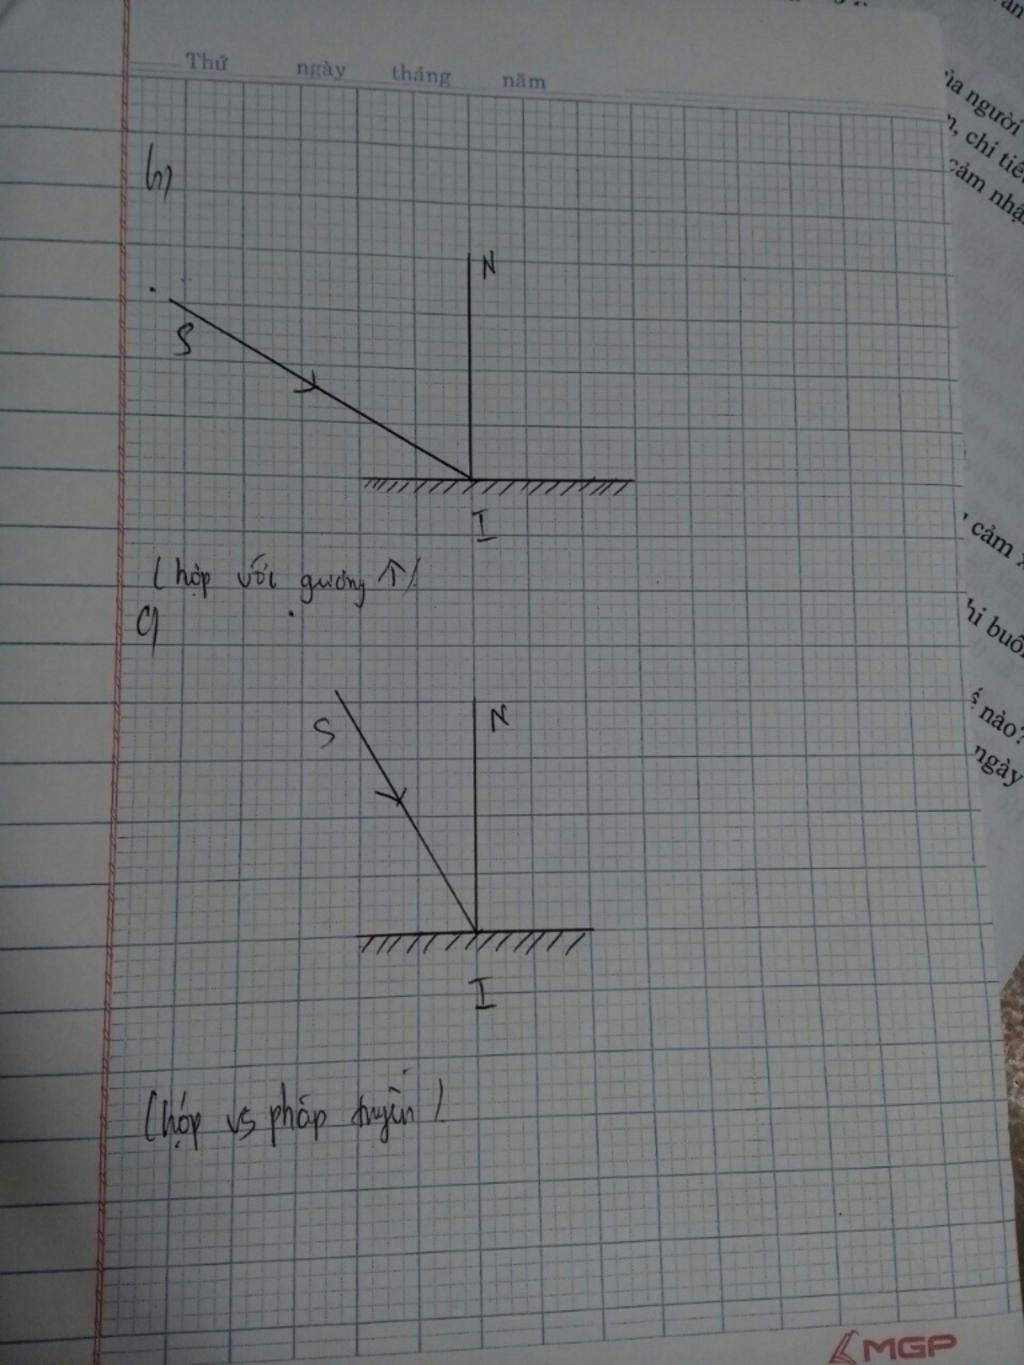 Thứ ngày tháng năm
b)
N
S
I
(hợp với gương ↑)
c)
S
N
I
(hợp vs pháp tuyến)
MGP
ủa người
, chi tiế
cảm nhậ
cảm x
hi buồ
nào?
ngày